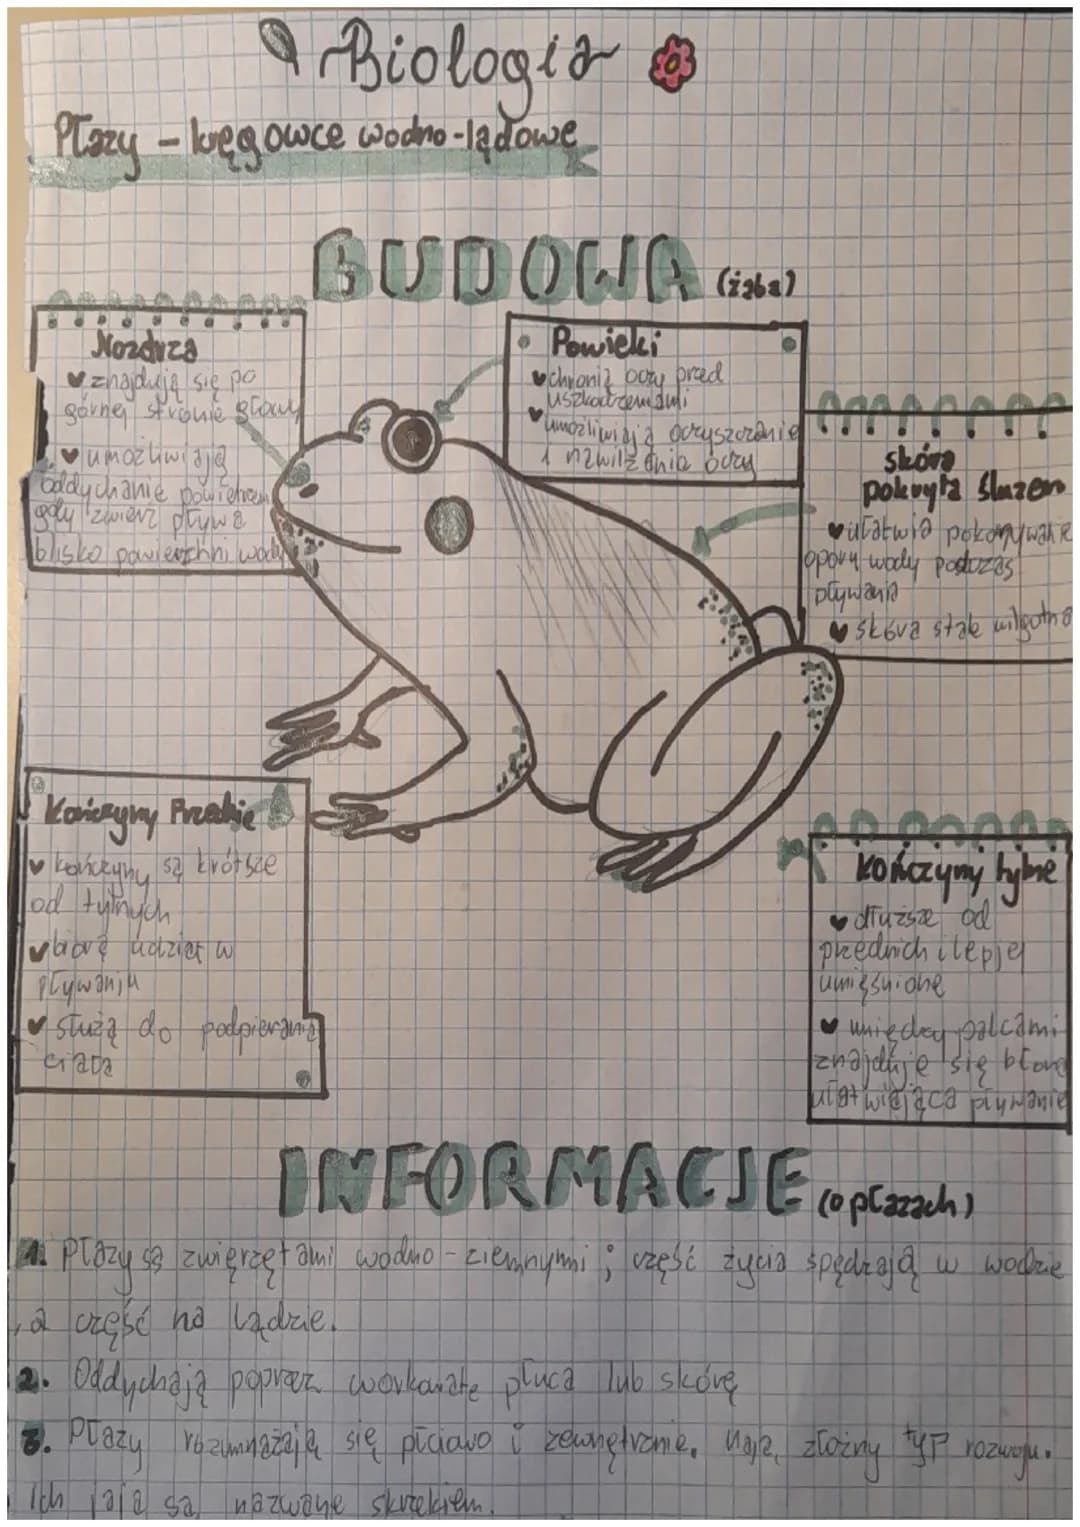 Biologia
Płazy - kręgowce wodno-lądowe
BUDOWA (żaba)
Nozdrza
znajdują się po
górnej stronie głowy
umożliwiają
oddychanie powietrzem
gdy zwierz pływa
blisko powierzchni wody
Powieki
chronią oczy przed
uszkodzeniami
umożliwiają oczyszczanie
i nawilżenia oczy
skóra
pokryta śluzem
ułatwia pokonywanie
oporu wody podczas
pływania
skóra stale wilgotna
Kończyny Przednie
kończyny są krótsze
od tylnych
biorą udział w
pływaniu
służą do podpierania
ciała
Kończyny tylne
dłuższe od
przednich i lepiej
umięśnione
między palcami
znajduje się błona
ułatwiająca pływanie
INFORMACJE (o płazach)
1. Płazy są zwierzętami wodno-ziemnymi; część życia spędzają w wodzie
, a część na lądzie.
2. Oddychają poprzez workowate płuca lub skórę
3. Płazy rozmnażają się płciowo i zewnętrznie. Mają złożny typ rozwoju.
Ich jaja są nazwane skrzekiem.